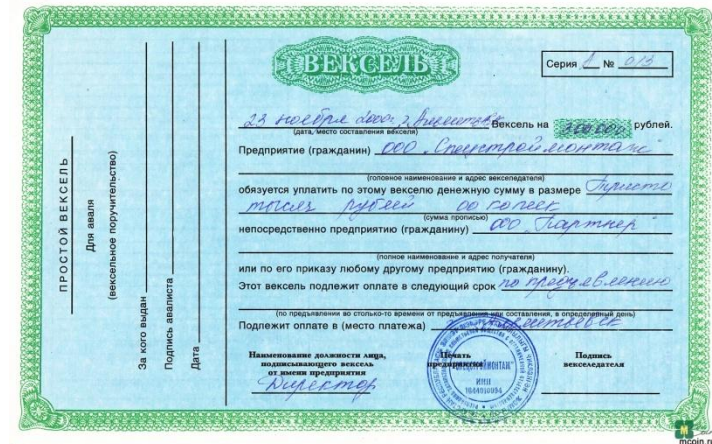 ВЕКСЕЛЬ
Серия 1 № 013
23 ноября 2000 г. Вексель на 300 000 рублей.
(дата, место составления векселя)
Предприятие (гражданин) ООО "Спецстроймонтаж"
(головное наименование и адрес векселедателя)
обязуется уплатить по этому векселю денежную сумму в размере Триста
тысяч рублей 00 копеек
(сумма прописью)
непосредственно предприятию (гражданину) ООО "Партнер"
(полное наименование и адрес получателя)
или по его приказу любому другому предприятию (гражданину).
Этот вексель подлежит оплате в следующий срок по предъявлению
(по предъявлении во столько-то времени от предъявления или составления, в определенный день)
Подлежит оплате в (место платежа)
Наименование должности лица,
подписывающего вексель
от имени предприятия
Директор
Печать
предприятия
Подпись
векселедателя
ИНН
ПРОСТОЙ ВЕКСЕЛЬ
Для аваля
(вексельное поручительство)
За кого выдан
Подпись авалиста
Дата
mcoin.ru